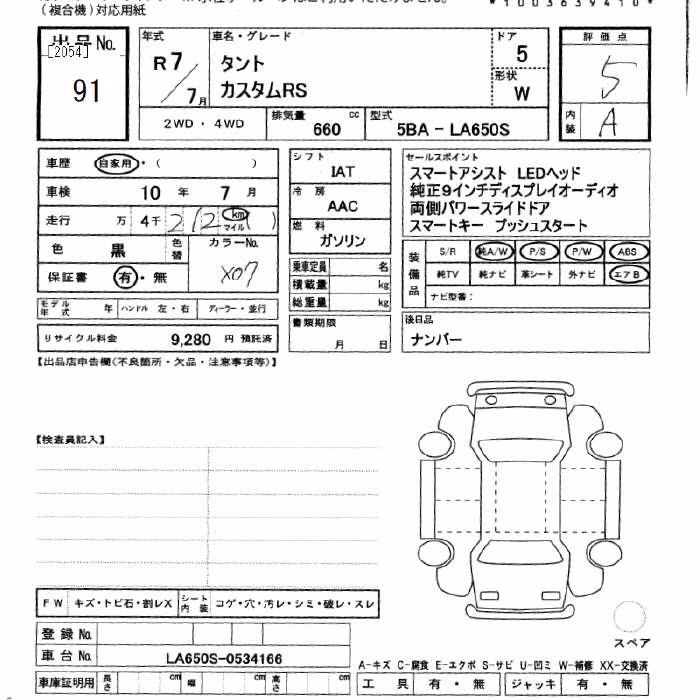 (複合機)対応用紙
*1003639410*
出品No.
[2054]
91
年式
R7/7月
車名・グレード
タント
カスタムRS
ドア
5
形状
W
評価点
5
内装
A
2WD・4WD
排気量
660 cc
型式
5BA - LA650S
車歴 自家用・( )
車検 10 年 7 月
走行 万 4千 212 km マイル ( )
色 黒 色替
カラーNo.
X07
保証書 有・無
モデル年式 年 ハンドル 左・右 ディーラー・並行
リサイクル料金 9,280 円 預託済
シフト
IAT
冷房
AAC
燃料
ガソリン
乗車定員 名
積載量 kg
総重量 kg
書類期限
月 日
セールスポイント
スマートアシスト LEDヘッド
純正9インチディスプレイオーディオ
両側パワースライドドア
スマートキー プッシュスタート
装備品
S/R 純A/W P/S P/W ABS
純TV 純ナビ 革シート 外ナビ エアB
ナビ型番:
後日品
ナンバー
【出品店申告欄(不良箇所・欠品・注意事項等)】
【検査員記入】
FW キズ・トビ石・割レX
シート内装 コゲ・穴・汚レ・シミ・破レ・スレ
登録No.
車台No. LA650S-0534166
車庫証明用 長さ cm 幅 cm 高さ cm
スペア
A-キズ C-腐食 E-エクボ S-サビ U-凹ミ W-補修 XX-交換済
工具 有・無 ジャッキ 有・無